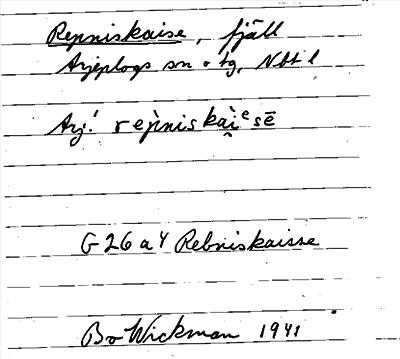 Repniskaise, fjäll
Arjeplogs sn o tg, Nbt l
Arj! repniskài̯ᵉsē
G 26 a 4 Rebniskaisse
Bo Wickman 1941